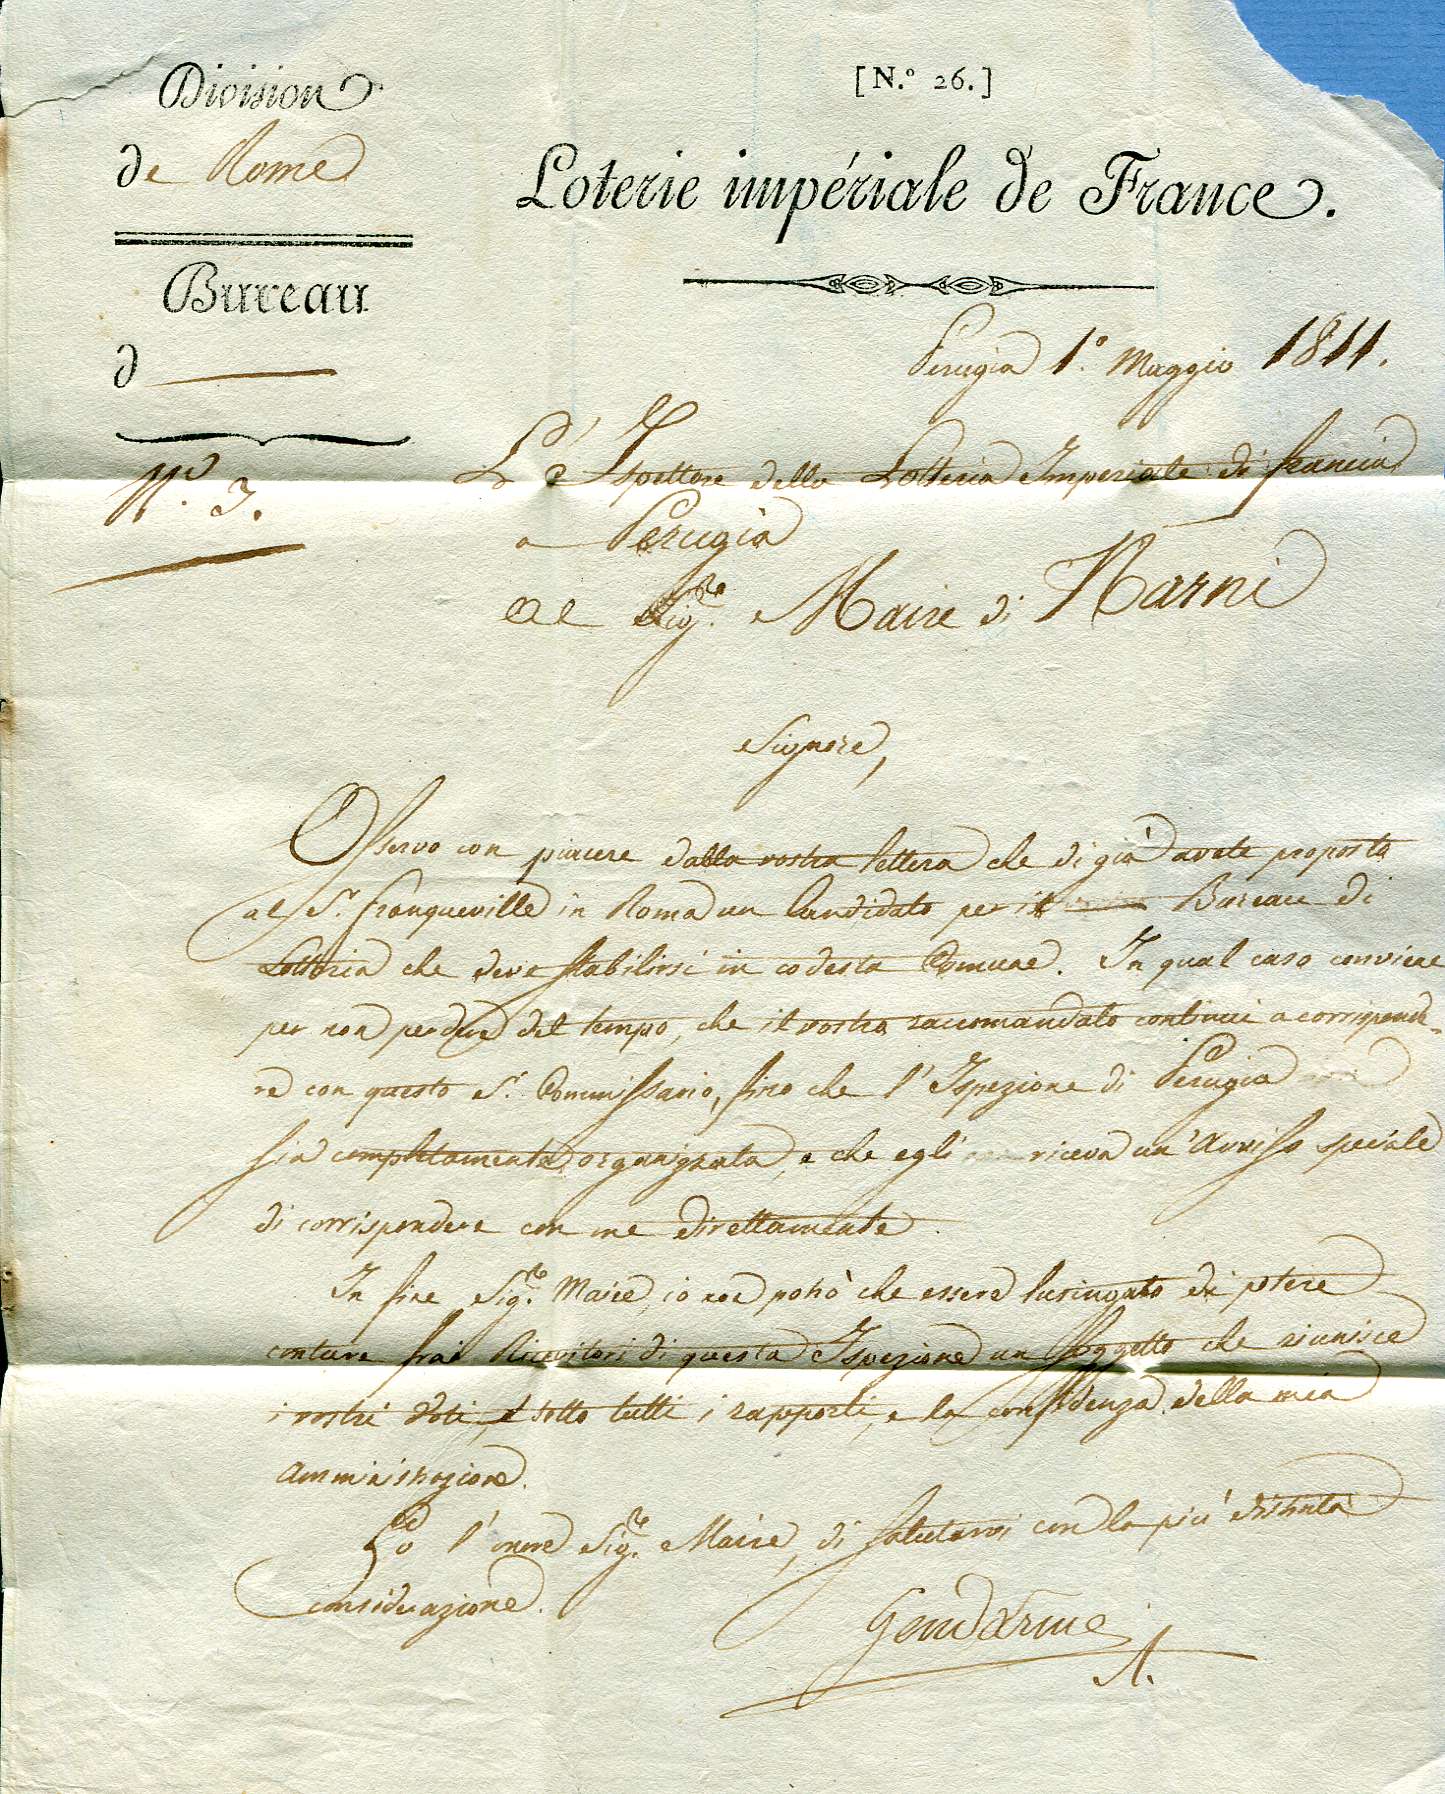 Division
de Rome
Bureau
d
N.o 3.
[N.o 26.]
Loterie impériale de France.
Perugia 1.o Maggio 1811.
L'Ispettore della Lotteria Imperiale di Francia
a Perugia
Al Sig.re Maire di Narni
Signore,
Osservo con piacere dalla vostra lettera che di già avete proposto
al S.r Franqueville in Roma un Candidato per il Bureau di
Lotteria che deve stabilirsi in codesta Comune. In qual caso conviene
per non perdere del tempo, che il vostro raccomandato continui a corrisponde-
re con questo S.r Commissario, fino che l'Ispezione di Perugia
sia completamente organizzata, e che egli riceva un'Avviso speciale
di corrispondere con me direttamente.
In fine Sig.re Maire, io non potrò che essere lusingato di potere
contare frai Ricevitori di questa Ispezione un Soggetto che riunisce
i vostri Voti, sotto tutti i rapporti, e la confidenza della mia
Amministrazione.
Ho l'onore Sig.re Maire, di salutarvi con la più distinta
considerazione.
Gendarme
A.